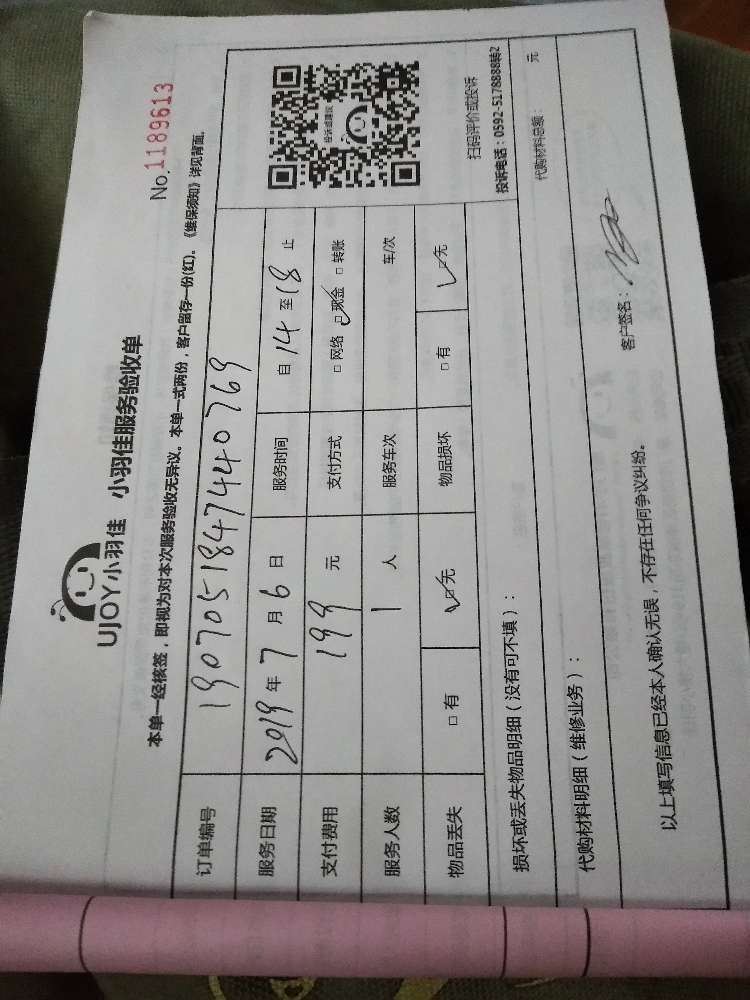 UJOY小羽佳 小羽佳服务验收单
No.1189613
本单一经核签，即视为对本次服务验收无异议。本单一式两份，客户留存一份(红)。《维保须知》详见背面.
订单编号 190705184744 40769
服务日期 2019年7月6日 服务时间 自14至18止
支付费用 199元 支付方式 □网络 ☑现金 □转账
服务人数 1人 服务车次 车/次
物品丢失 □有 ☑无 物品损坏 □有 ☑无
投诉或建议
扫码评价或投诉
投诉电话：0592-5178888转2
损坏或丢失物品明细（没有可不填）：
代购材料明细（维修业务）： 代购材料总额： 元
以上填写信息已经本人确认无误，不存在任何争议纠纷。 客户签名：